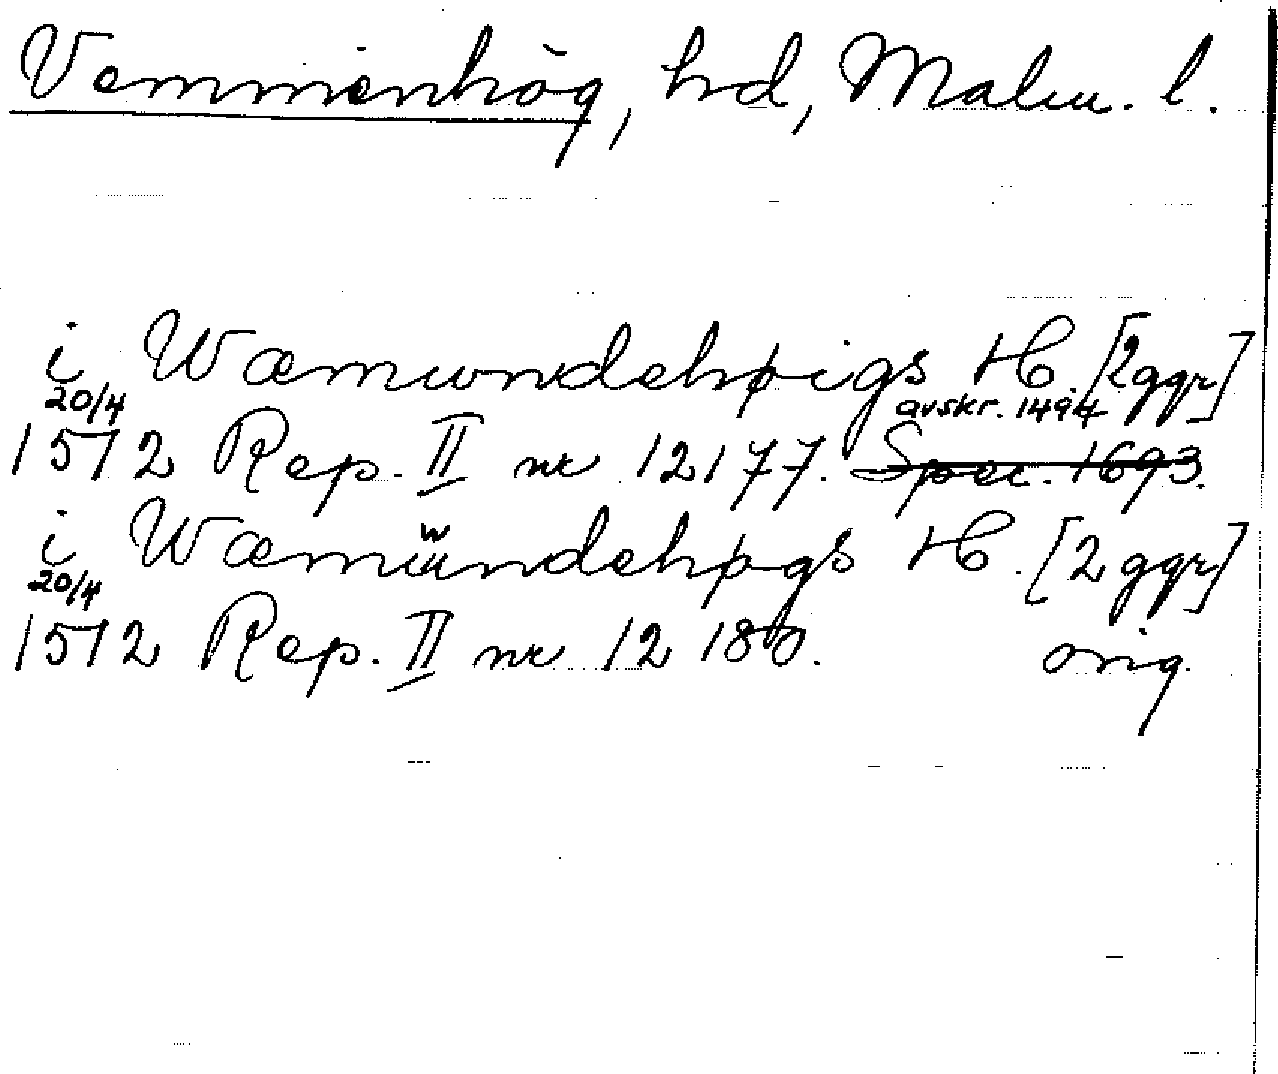 Vemmenhög, hd, Malm. l.
i Wæmwndehøigs H. [2 ggr]
20/4 avskr. 1494
1512 Rep. II nr 12177. Spec. 1693.
i Wæmündehøgs H. [2 ggr]
20/4
1512 Rep. II nr 12180. orig.